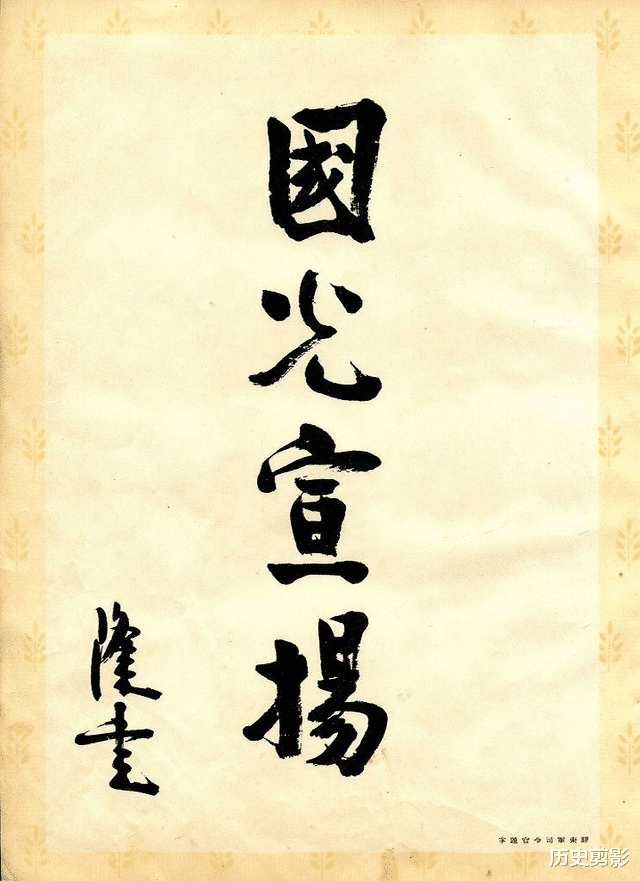 國光宣揚
隆書
關東軍司令官題字
历史剪影